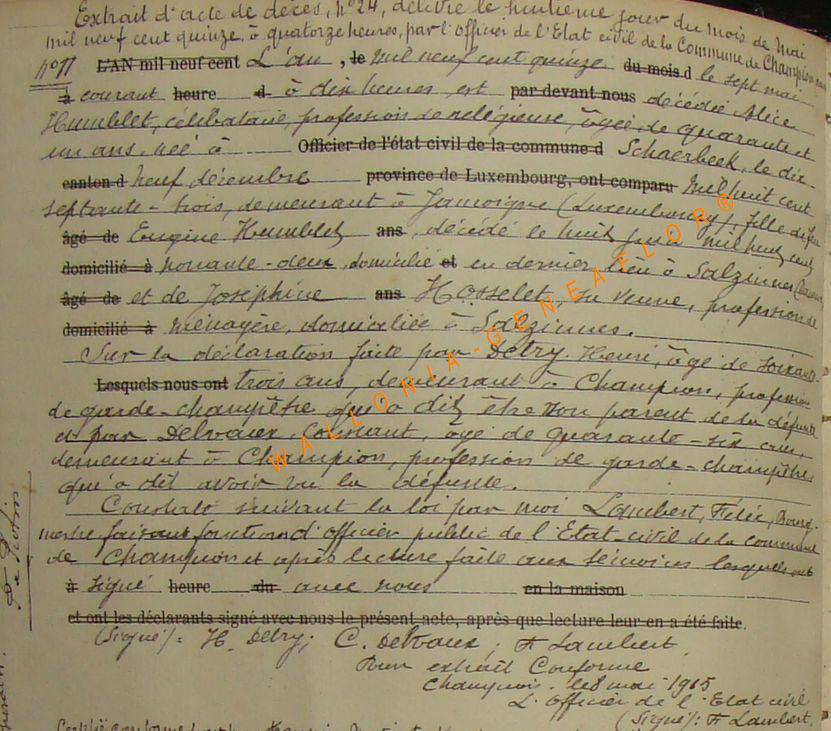 Extrait d'acte de décès, n° 24, délivré le huitième jour du mois de Mai
mil neuf cent quinze, à quatorze heures, par l'Officier de l'Etat civil de la Commune de Champion
N° 11 L'AN mil neuf cent L'an, le mil neuf cent quinze du mois d le sept mai
à courant heure d à dix heures, est par-devant nous décédée Alice
Humblet, célibataire, profession de religieuse, âgée de quarante et
un ans, née à Officier de l'état civil de la commune d Schaerbeek, le dix-
canton d neuf décembre province de Luxembourg, ont comparu mil huit cent
septante-trois, demeurant à Jamoigne (Luxembourg), fille de feu
âgé de Eugène Humblet ans, décédé le huit mil huit cent
domicilié à nonante-deux, domicilié et en dernier lieu à Salzinnes
âgé de et de Joséphine ans Hosselet, sa veuve, profession de
domicilié à ménagère, domiciliée à Salzinnes.
Sur la déclaration faite par Detry, Henri, âgé de soixante-
Lesquels nous ont trois ans, demeurant à Champion, profession
de garde-champêtre qui a dit être non parent de la défunte
et par Delvaux, Constant, âgé de quarante-six ans,
demeurant à Champion, profession de garde-champêtre,
qui a dit avoir vu la défunte.
Constaté suivant la loi par moi Lambert, Félix, Bourg-
mestre faisant fonctions d'officier public de l'Etat-civil de la commune
de Champion et après lecture faite aux témoins lesquels ont
à signé heure du avec nous en la maison
et ont les déclarants signé avec nous le présent acte, après que lecture leur en a été faite.
(Signé): H. Detry; C. Delvaux; F. Lambert.
Pour extrait Conforme
Champion, le 8 mai 1915
L'Officier de l'Etat civil
(Signé): F. Lambert.
WALLONIA-GENEAFLOR®